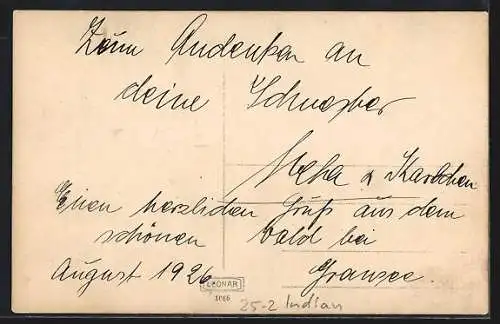 Zum Andenken an
deine Schwester
Meha & Karlchen
Einen herzlichen Gruß aus dem
schönen Wald bei
August 1926 Gransee.
LEONAR
25-2 Indian